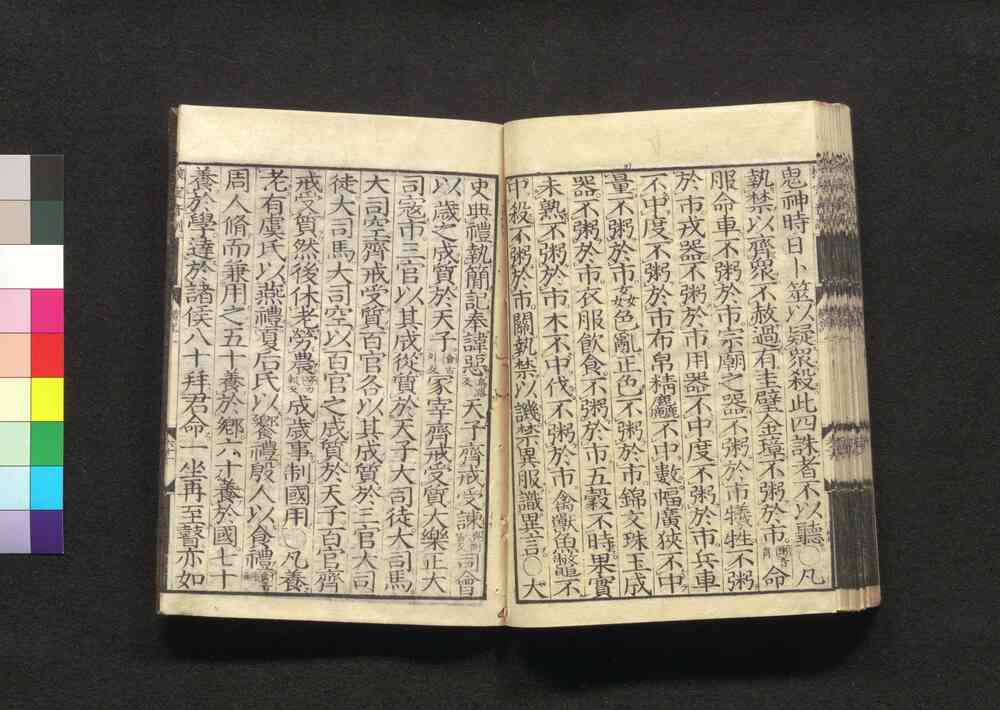 鬼神時日卜筮以疑衆殺此四誅者不以聽○凡
執禁以齊衆不赦過有圭璧金璋不粥於市命
服命車不粥於市宗廟之器不粥於市犧牲不粥
於市戎器不粥於市用器不中度不粥於市兵車
不中度不粥於市布帛精麤不中數幅廣狹不中
量不粥於市姦色亂正色不粥於市錦文珠玉成
器不粥於市衣服飲食不粥於市五穀不時果實
未熟不粥於市木不中伐不粥於市禽獸魚鼈不
中殺不粥於市關執禁以譏禁異服識異言○大
史典禮執簡記奉諱惡天子齊戒受諫司會
以歲之成質於天子冢宰齊戒受質大樂正大
司寇市三官以其成從質於天子大司徒大司馬
大司空齊戒受質百官各以其成質於三官大司
徒大司馬大司空以百官之成質於天子百官齊
戒受質然後休老勞農成歲事制國用○凡養
老有虞氏以燕禮夏后氏以饗禮殷人以食禮
周人脩而兼用之五十養於鄉六十養於國七十
養於學達於諸侯八十拜君命一坐再至瞽亦如